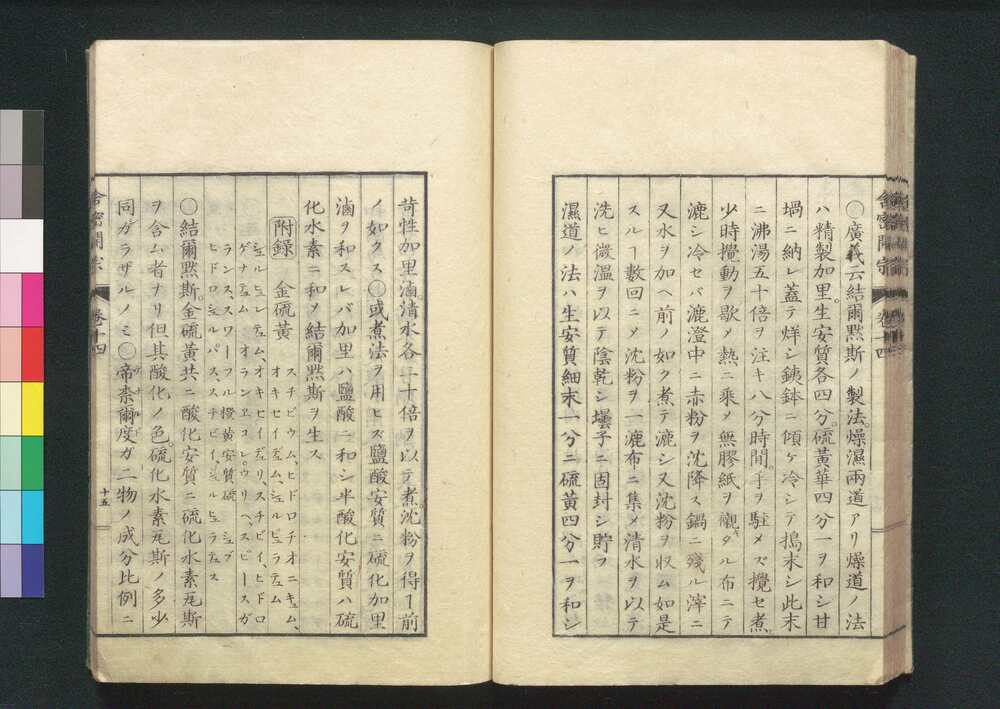 ○廣義云結爾黙斯ノ製法燥濕兩道アリ燥道ノ法
ハ精製加里。生安質各四分。硫黃華四分一ヲ和シ甘
堝ニ納レ蓋テ烊シ銕鉢ニ傾ケ冷シテ搗末シ此末
ニ沸湯五十倍ヲ注キ八分時間。手ヲ駐メズ攪セ煮。
少時攪動ヲ歇メ熱ニ乘メ無膠紙ヲ襯タル布ニテ
漉シ冷セバ漉澄中ニ赤粉ヲ沈降ス鍋ニ殘ル滓ニ
又水ヲ加ヘ前ノ如ク煮テ漉シ又沈粉ヲ収ム如是
スルヿ數回ニメ沈粉ヲ一漉布ニ集メ清水ヲ以テ
洗ヒ微溫ヲ以テ陰乾シ壜子ニ固封シ貯ヲ
濕道ノ法ハ生安質細末一分ニ硫黃四分一ヲ和シ
舎密開宗
卷十四
苛性加里滷。清水各二十倍ヲ以テ煮。沈粉ヲ得ヿ前
ノ如クス○或煮法ヲ用ヒズ鹽酸安質ニ硫化加里
滷ヲ和スレバ加里ハ鹽酸ニ和シ半酸化安質ハ硫
化水素ニ和メ結爾黙斯ヲ生ス
附録 金硫黃
スチビウム、ヒドロチオニキュム、
オキセイヂュム、シュルピュラチュム
シュルヒュレチュム、オキセイヂュリ、スチビイ、ヒドロ
ゲナチュム オランエコレウリヘ、スピースガ
ランス、スワーフル 橙黃安質硫
ヒドロシュルパス、スチビイ、シュルヒュラチュス
○結爾黙斯。金硫黃共ニ酸化安質ニ硫化水素瓦斯
ヲ含ム者ナリ但其酸化ノ色。硫化水素瓦斯ノ多少
同ガラザルノミ○帝柰爾度ガ二物ノ成分比例ニ
舎密開宗
卷十四
十五